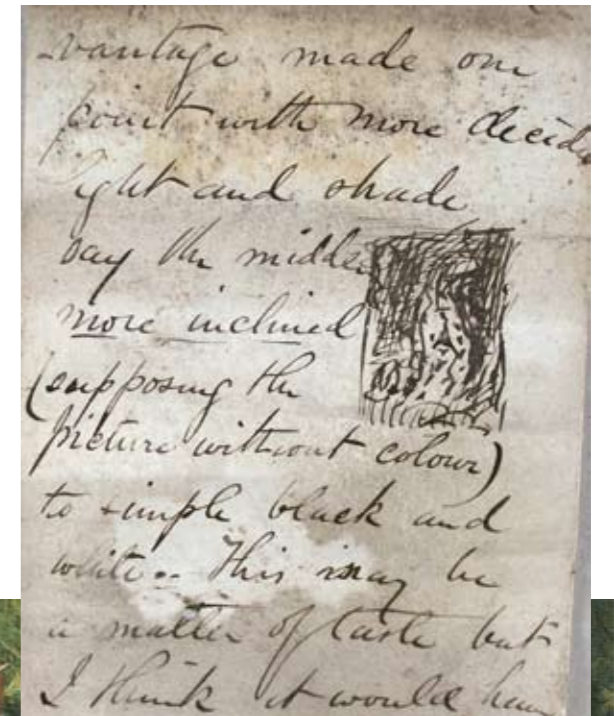 -vantage made one
point with more decide
light and shade
say the middle
more inclined
(supposing the
picture without colour)
to simple black and
white.. This may be
a matter of taste but
I think it would have